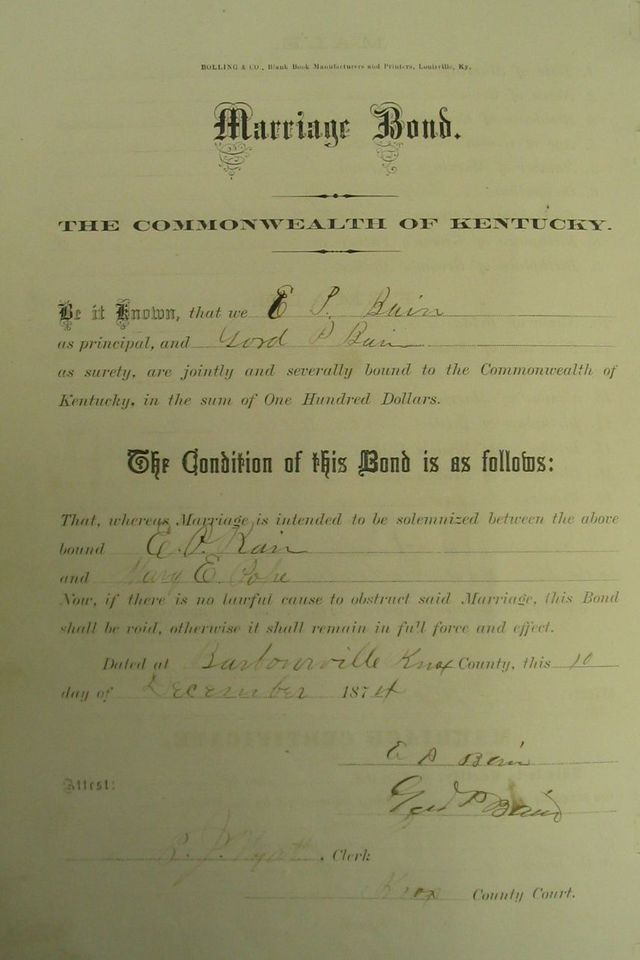 BOLLING & CO., Blank Book Manufacturers and Printers, Louisville, Ky.
Marriage Bond.
THE COMMONWEALTH OF KENTUCKY.
Be it Known, that we E P. Bain
as principal, and P Bain
as surety, are jointly and severally bound to the Commonwealth of
Kentucky, in the sum of One Hundred Dollars.
The Condition of this Bond is as follows:
That, whereas Marriage is intended to be solemnized between the above
bound E. P. Bain
and Mary E.
Now, if there is no lawful cause to obstruct said Marriage, this Bond
shall be void, otherwise it shall remain in full force and effect.
Dated at Barbourville Knox County, this 10
day of December 1874
E P Bain
P Bain
Attest:
Wyatt, Clerk
Knox County Court.